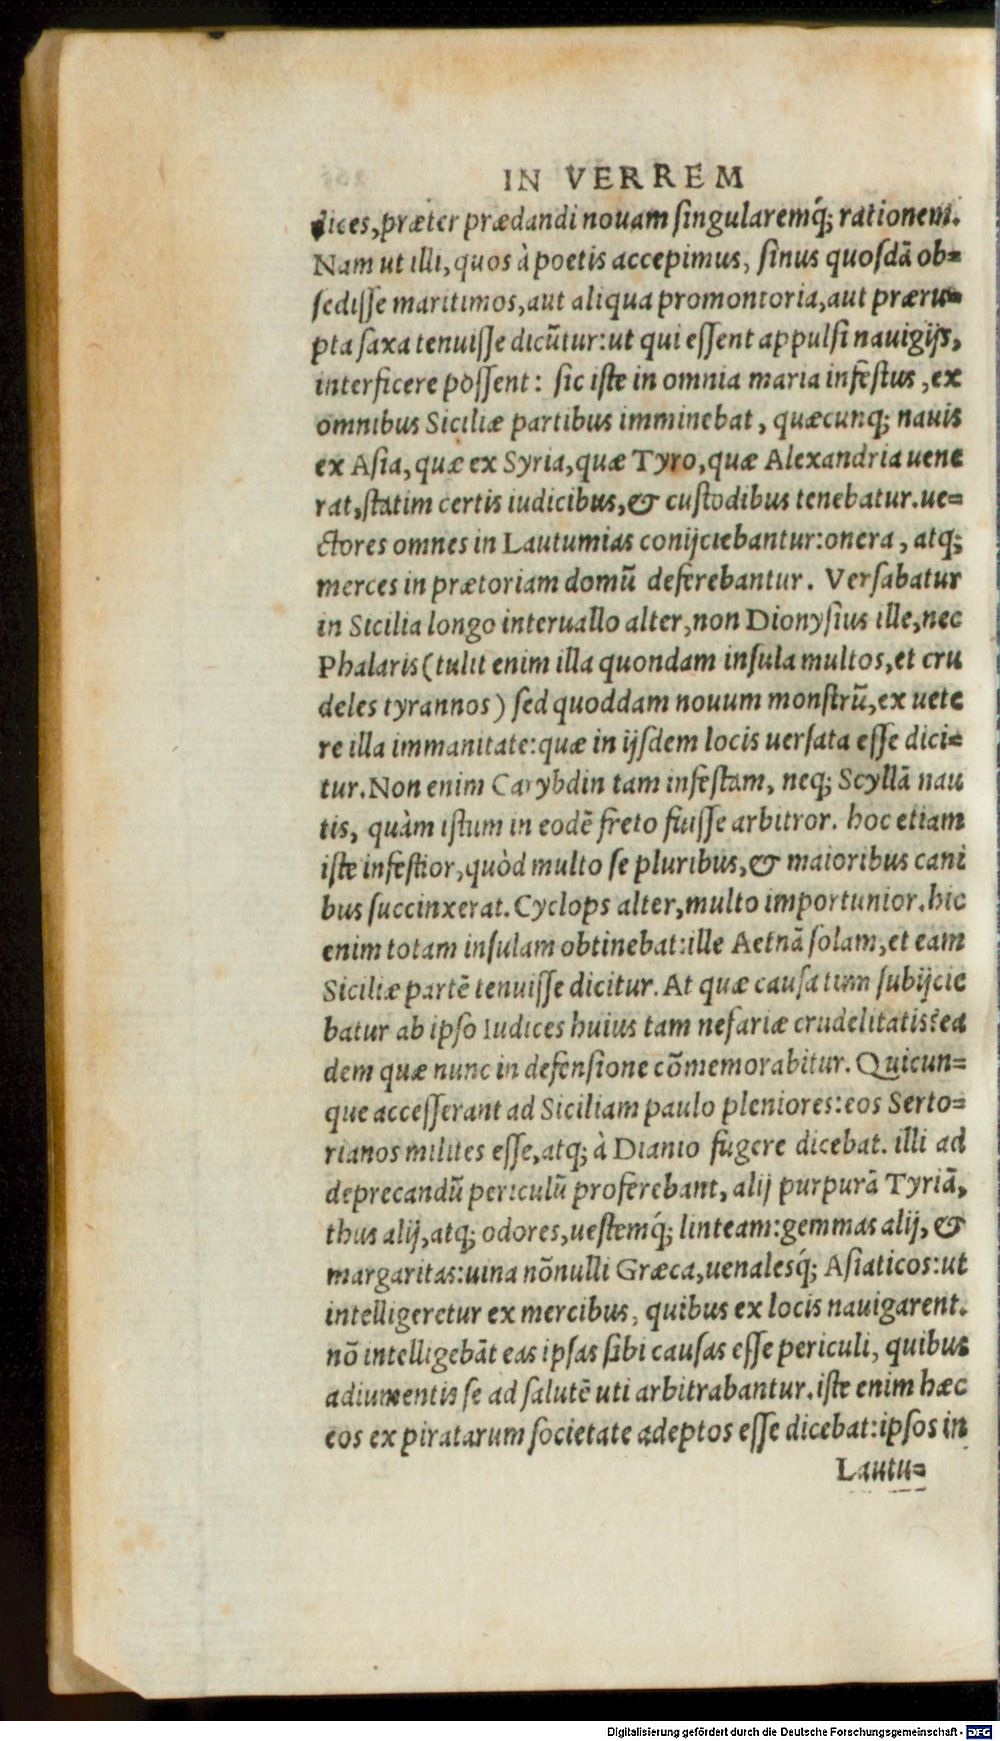 IN VERREM
dices, præter prædandi nouam singularemq́; rationem.
Nam ut illi, quos à poetis accepimus, sinus quosdā ob=
sedisse maritimos, aut aliqua promontoria, aut præru=
pta saxa tenuisse dicūtur: ut qui essent appulsi nauigijs,
interficere possent: sic iste in omnia maria infestus, ex
omnibus Siciliæ partibus imminebat, quæcunq; nauis
ex Asia, quæ ex Syria, quæ Tyro, quæ Alexandria uene
rat, statim certis iudicibus, & custodibus tenebatur. ue=
ctores omnes in Lautumias conijciebantur: onera, atq;
merces in prætoriam domū deferebantur. Versabatur
in Sicilia longo interuallo alter, non Dionysius ille, nec
Phalaris (tulit enim illa quondam insula multos, et cru
deles tyrannos) sed quoddam nouum monstrū, ex uete
re illa immanitate: quæ in ijsdem locis uersata esse dici=
tur. Non enim Carybdin tam infestam, neq; Scyllā nau
tis, quàm istum in eodē freto fuisse arbitror. hoc etiam
iste infestior, quòd multo se pluribus, & maioribus cani
bus succinxerat. Cyclops alter, multo importunior. hic
enim totam insulam obtinebat: ille Aetnā solam, et eam
Siciliæ partē tenuisse dicitur. At quæ causa tum subijcie
batur ab ipso Iudices huius tam nefariæ crudelitatis? ea
dem quæ nunc in defensione cōmemorabitur. Quicun=
que accesserant ad Siciliam paulo pleniores: eos Serto=
rianos milites esse, atq; à Dianio fugere dicebat. illi ad
deprecandū periculū proferebant, alij purpurā Tyriā,
thus alij, atq; odores, uestemq́; linteam: gemmas alij, &
margaritas: uina nōnulli Græca, uenalesq́; Asiaticos: ut
intelligeretur ex mercibus, quibus ex locis nauigarent.
nō intelligebāt eas ipsas sibi causas esse periculi, quibus
adiumentis se ad salutē uti arbitrabantur. iste enim hæc
eos ex piratarum societate adeptos esse dicebat: ipsos in
Lautu=
Digitalisierung gefördert durch die Deutsche Forschungsgemeinschaft - DFG